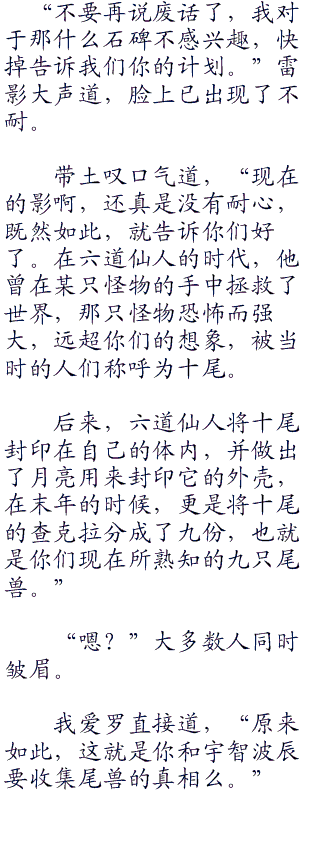 “不要再说废话了，我对
于那什么石碑不感兴趣，快
掉告诉我们你的计划。”雷
影大声道，脸上已出现了不
耐。
带土叹口气道，“现在
的影啊，还真是没有耐心，
既然如此，就告诉你们好
了。在六道仙人的时代，他
曾在某只怪物的手中拯救了
世界，那只怪物恐怖而强
大，远超你们的想象，被当
时的人们称呼为十尾。
后来，六道仙人将十尾
封印在自己的体内，并做出
了月亮用来封印它的外壳，
在末年的时候，更是将十尾
的查克拉分成了九份，也就
是你们现在所熟知的九只尾
兽。”
“嗯？”大多数人同时
皱眉。
我爱罗直接道，“原来
如此，这就是你和宇智波辰
要收集尾兽的真相么。”